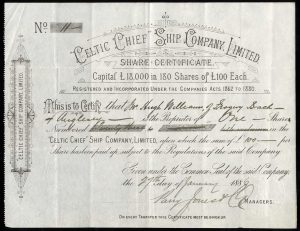 No. 11
CELTIC CHIEF SHIP COMPANY, LIMITED
SHARE CERTIFICATE.
Capital £18,000 in 180 Shares of £100 Each.
REGISTERED AND INCORPORATED UNDER THE COMPANIES ACTS 1862 TO 1880.
This is to Certify that Mr Hugh Williams of
is the Proprietor of One Share
Numbered
CELTIC CHIEF SHIP COMPANY, LIMITED, upon which the sum of £100 per
Share has been paid up, subject to the Regulations of the said Company.
Given under the Common Seal of the said Company,
the 27th day of January
MANAGERS.
ON EVERY TRANSFER THIS CERTIFICATE MUST BE
CELTIC CHIEF SHIP COMPANY, LIMITED.